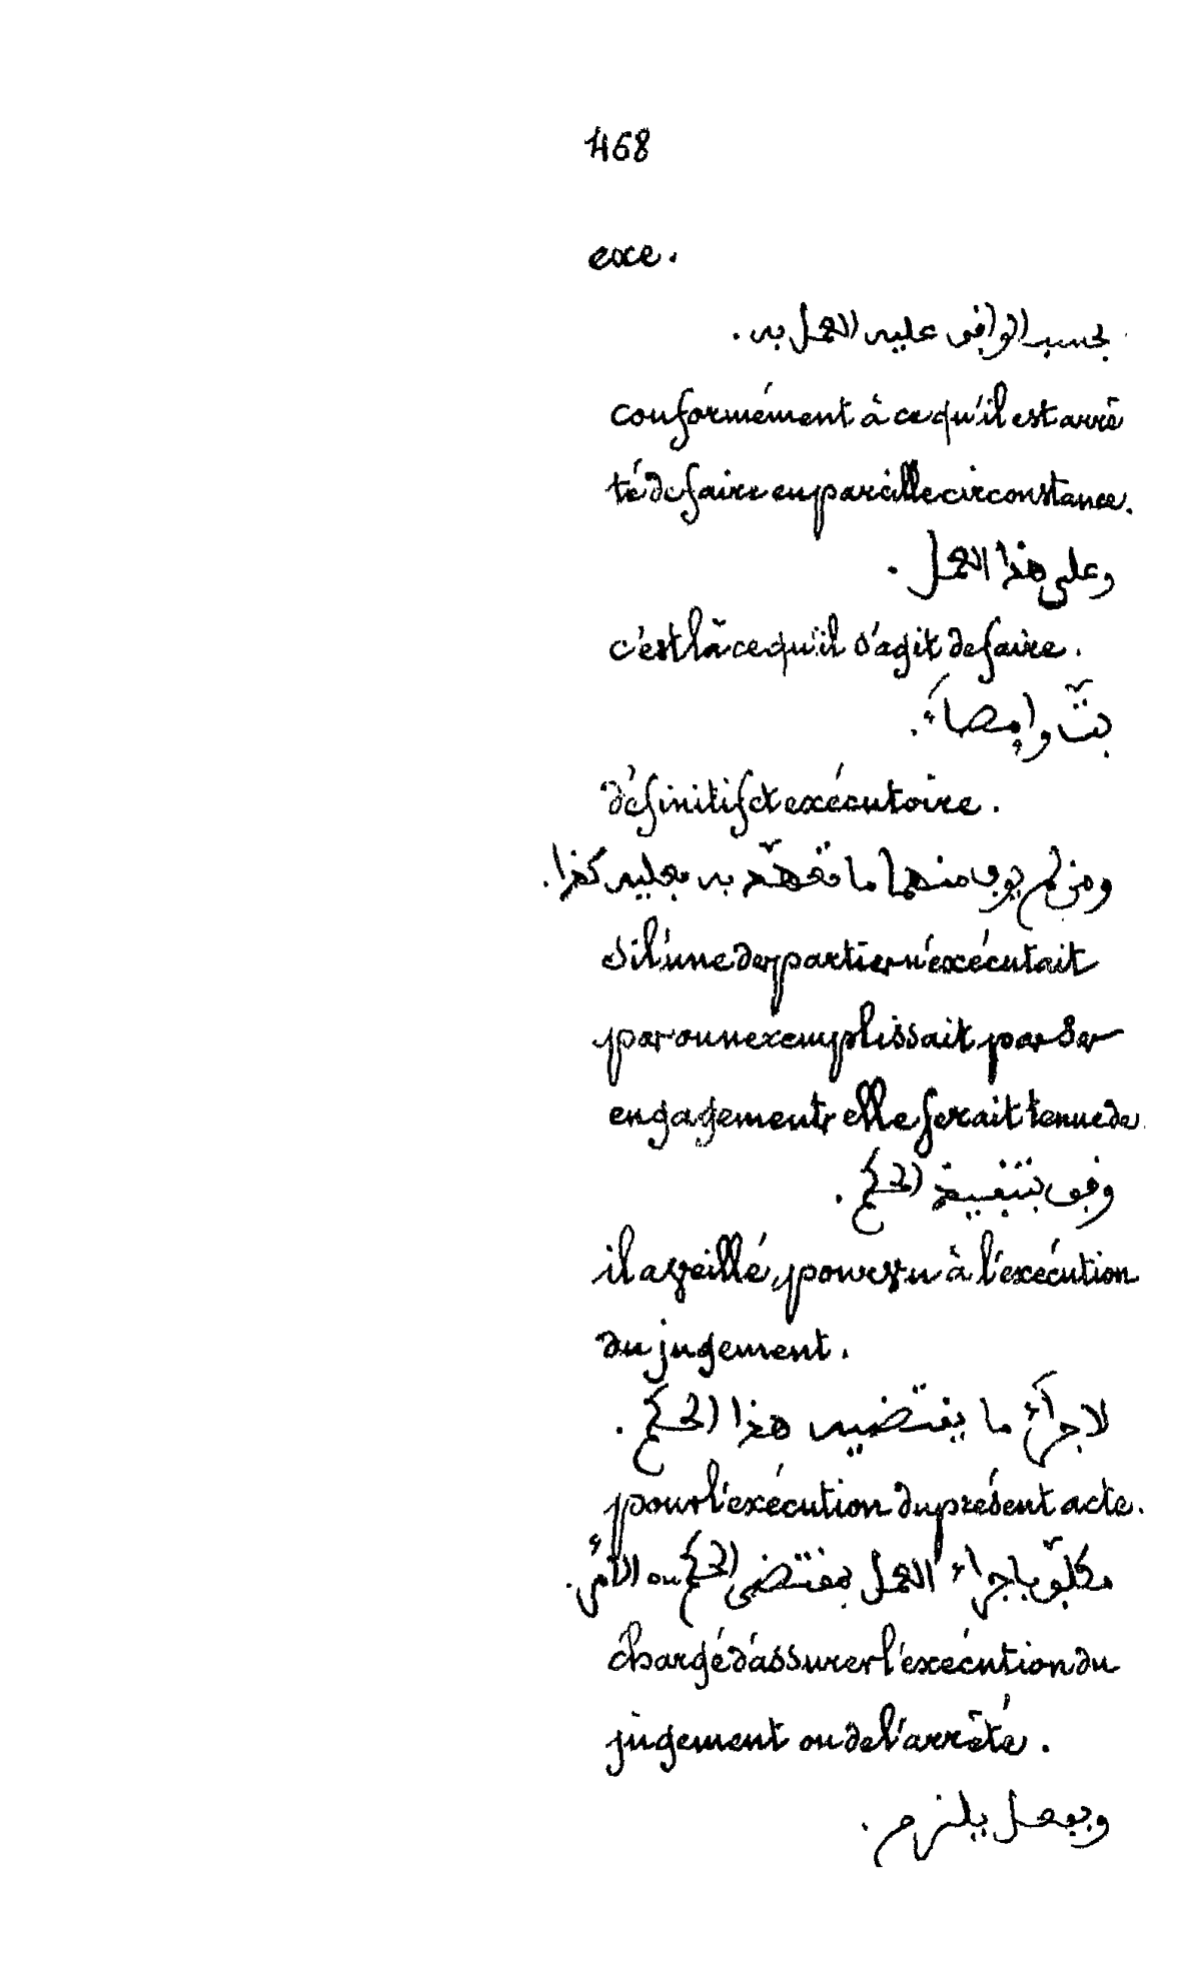 468
exe.
بحسب الوافق عليه العمل به.
conformément à ce qu'il est arrê
té de faire en pareille circonstance.
وعلى هذا العمل.
c'est là ce qu'il s'agit de faire.
بتّ وإمضاء.
définitif et exécutoire.
ومن لم يوف منهما ما تعهّد به فعليه كذا.
si l'une des parties n'exécutait
pas ou ne remplissait pas ses
engagements elle serait tenue de
وقف بتنفيذ الحكم.
il a veillé, pourvu à l'exécution
du jugement.
لاجراء ما يقتضيه هذا الحكم.
pour l'exécution du présent acte.
مكلّف باجراء العمل بمقتضى الحكم ou الأمر.
chargé d'assurer l'exécution du
jugement ou de l'arrêté.
وبفعل يلزم.